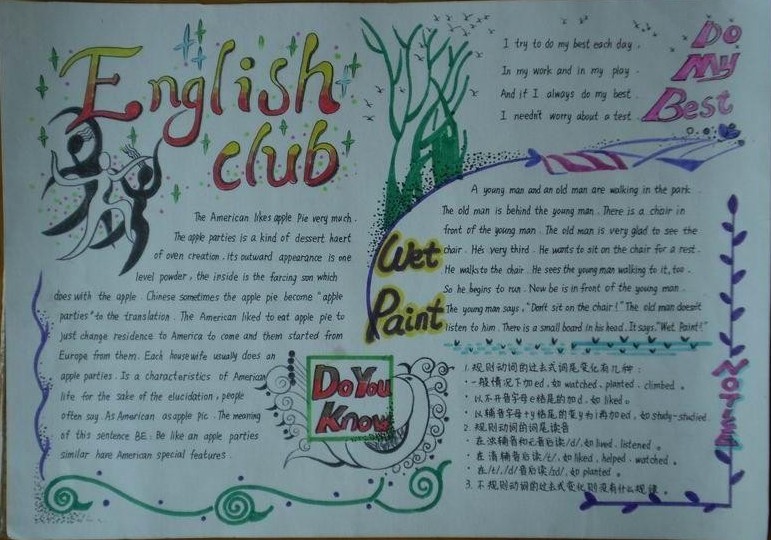 English
club
The American likes apple Pie very much.
The apple parties is a kind of dessert haert
of oven creation, its outward appearance is one
level powder, the inside is the farcing son which
does with the apple. Chinese sometimes the apple pie become "apple
parties" to the translation. The American liked to eat apple pie to
just change residence to America to come and them started from
Europe from them. Each housewife usually does an
apple parties. Is a characteristics of American
life for the sake of the elucidation, people
often say. As American as apple pic. The meaning
of this sentence BE: Be like an apple parties
similar have American special features.
Do You
Know
I try to do my best each day.
In my work and in my play.
And if I always do my best.
I needn't worry about a test.
Do
My
Best
Wet
Paint
A young man and an old man are walking in the park.
The old man is behind the young man. There is a chair in
front of the young man. The old man is very glad to see the
chair. He's very third. He wants to sit on the chair for a rest.
He walks to the chair. He sees the young man walking to it, too.
So he begins to run. Now be is in front of the young man.
The young man says, "Don't sit on the chair!" The old man doesn't
listen to him. There is a small board in his head. It says, "Wet Paint!"
1. 规则动词的过去式词尾变化有几种:
·一般情况下加ed,如watched、planted、climbed。
·以不开音字母e结尾的加d,如liked。
·以辅音字母+y结尾的变y为i再加ed,如study-studied
2. 规则动词的词尾读音
·在浊辅音和元音后读/d/,如lived、listened。
·在清辅音后读/t/,如liked、helped、watched。
·在/t/,/d/音后读/id/,如planted。
3. 不规则动词的过去式变化则没有什么规律。